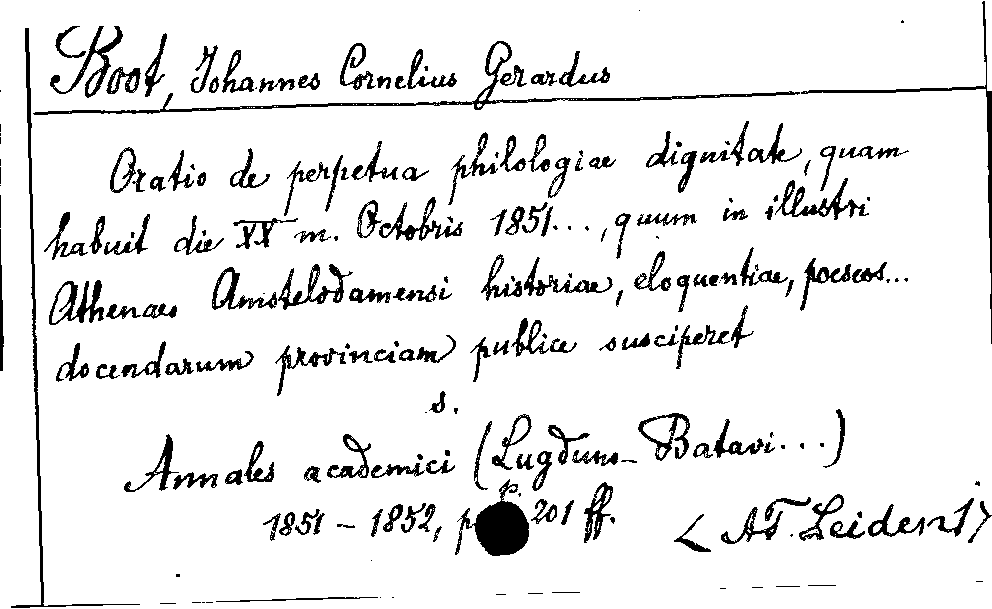 Boot, Johannes Cornelius Gerardus
Oratio de perpetua philologiae dignitate, quam
habuit die XX m. Octobris 1851..., quum in illustri
Athenaeo Amstelodamensi historiae, eloquentiae, poeseos...
docendarum provinciam publice susciperet
s.
Annales academici (Lugduno-Batavi...)
1851-1852, p. 201 ff.
<AT. Leiden 1>